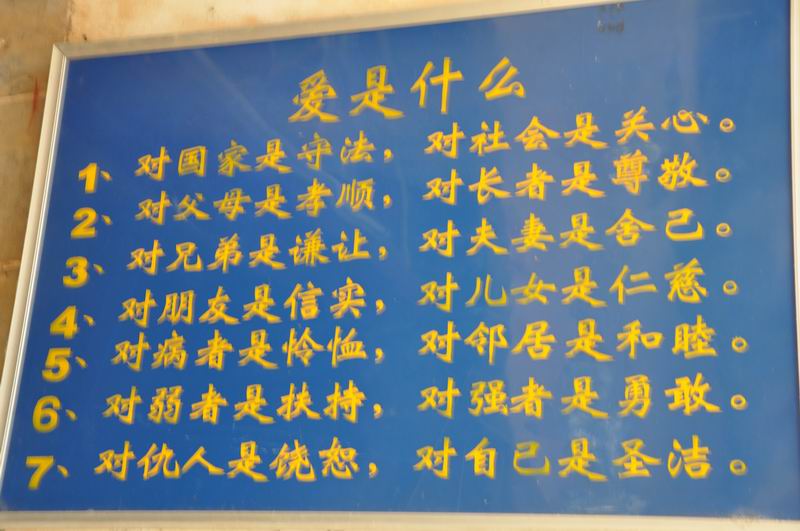 爱是什么
1、对国家是守法，对社会是关心。
2、对父母是孝顺，对长者是尊敬。
3、对兄弟是谦让，对夫妻是舍己。
4、对朋友是信实，对儿女是仁慈。
5、对病者是怜恤，对邻居是和睦。
6、对弱者是扶持，对强者是勇敢。
7、对仇人是饶恕，对自己是圣洁。